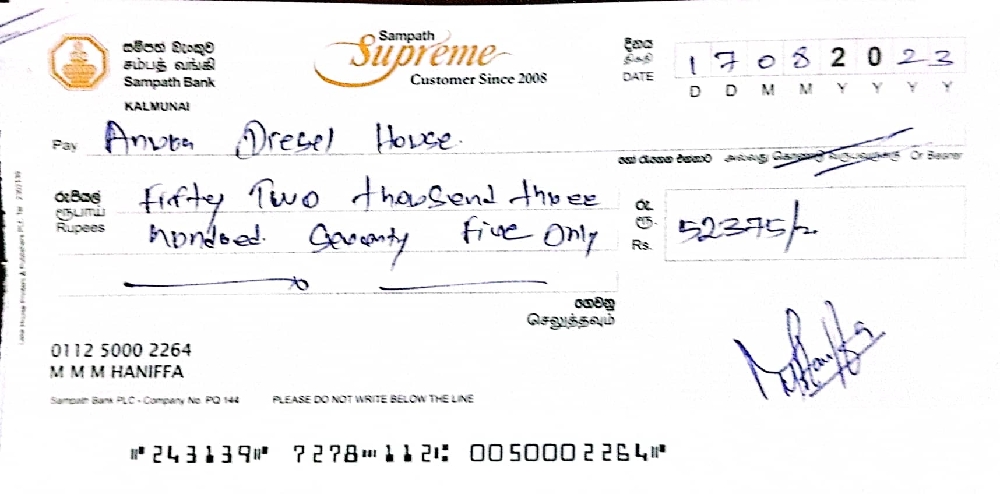 සම්පත් බැංකුව
சம்பத் வங்கி
Sampath Bank
KALMUNAI
Sampath
Supreme
Customer Since 2008
දිනය
திகதி
DATE
1 7 0 8 2 0 2 3
D D M M Y Y Y Y
Pay Anura Diesel House.
හෝ රැගෙන එන්නාට அல்லது கொண்டு வருபவருக்கு Or Bearer
රුපියල්
ரூபாய்
Rupees
Fifty Two thousand three
hundred. Seventy Five Only
රු.
ரூ.
Rs.
52375/=
ගෙවනු
செலுத்தவும்
0112 5000 2264
M M M HANIFFA
Sampath Bank PLC - Company No. PQ 144 PLEASE DO NOT WRITE BELOW THE LINE
⑈243139⑈ 7278⑉112⑆ 0050002264⑈